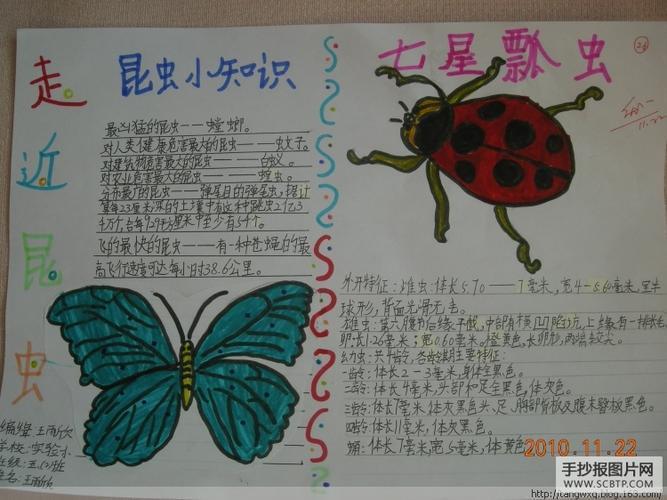 走近昆虫
昆虫小知识
最凶猛的昆虫——螳螂。
对人类健康危害最大的昆虫———蚊子。
对建筑物危害最大的昆虫——白蚁。
对农业危害最大的昆虫——蝗虫。
分布最广的昆虫——弹尾目的弹尾虫，据计
飞的最快的昆虫———有一种苍蝇的最
高飞行速度可达每小时38.6公里。
编辑：王雨欣
学校：实验小
班级：五(5)班
姓名：王雨欣
七星瓢虫
26
11.22
外形特征：雌虫：体长5.70—7毫米，宽4—5.60毫米，呈半
球形，背面光滑无毛。
雄虫：第六腹节后缘平截，中部有横凹陷坑，上缘有一排长毛
卵：长1.26毫米；宽0.60毫米，橙黄色，长卵形，两端较尖。
幼虫：共4龄，各龄期主要特征：
一龄：体长2—3毫米，身体全黑色。
二龄：体长4毫米，头部和足全黑色，体灰色。
三龄：体长7毫米，体灰黑色，头、足、胸部背板及腹末臀板黑色。
四龄：体长11毫米，体灰黑色。
蛹：体长7毫米，宽5毫米，体黄色
2010.11.22
手抄报图片网
WWW.SCBTP.COM
http://tangwxq.blog.163.com/